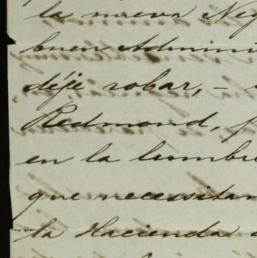 la nueva Neg
buen Admini
déje robar, –
Redmond, p
en la lumbre
que necesitan
la Hacienda